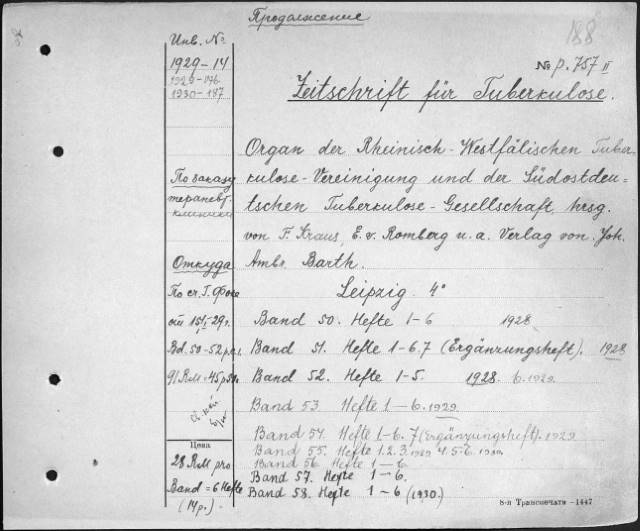 Продолжение
188
Инв. №
1929-14
1929-176
1930-187
№ P. 757 II
Zeitschrift für Tuberkulose.
Organ der Rheinisch-Westfälischen Tuber-
kulose-Vereinigung und der Südostdeu-
tschen Tuberkulose-Gesellschaft, hrsg.
von F. Kraus, E. v. Romberg u. a. Verlag von Joh.
Ambr. Barth.
Leipzig. 4°
По заказу
терапевт.
клиники
Откуда
По сч. Г. Фоке
от 15/I-29г.
Bd. 50-52 р.а.
91 RM = 45 р 50к.
Band 50. Hefte 1-6 1928
Band 51. Hefte 1-6.7 (Ergänzungsheft). 1928
Band 52. Hefte 1-5. 1928. 6.1929.
Band 53. Hefte 1-6. 1929
Band 54. Hefte 1-6. 7 (Ergänzungsheft). 1929
Band 55. Hefte 1. 2. 3. 1929 4. 5. 6. 1930.
Band 56. Hefte 1-6.
Band 57. Hefte 1-6.
Band 58. Hefte 1-6 (1930.)
Цена
28 RM pro
Band = 6 Hefte
(14 р.)
8-я Транспечать - 1447